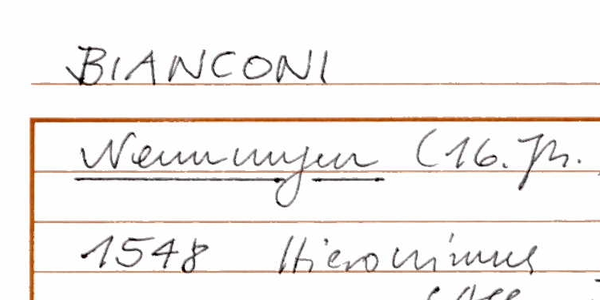 BIANCONI
Nennungen (16. Jh.
1548 Hieronimus